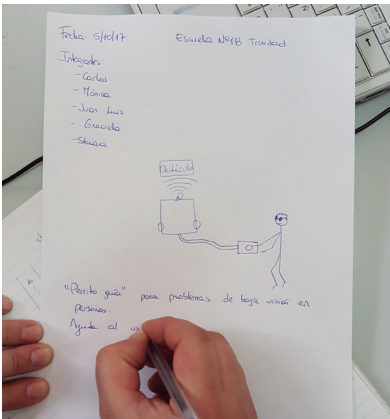 Fecha: 5/10/17 Escuela Nº18 Trinidad
Integrantes:
-Carlos
-Mónica
-Juan Luis
-Graciela
-Silvana
Obstáculo
"Perrito guía" para problemas de baja visión en
personas.
Ayuda al us